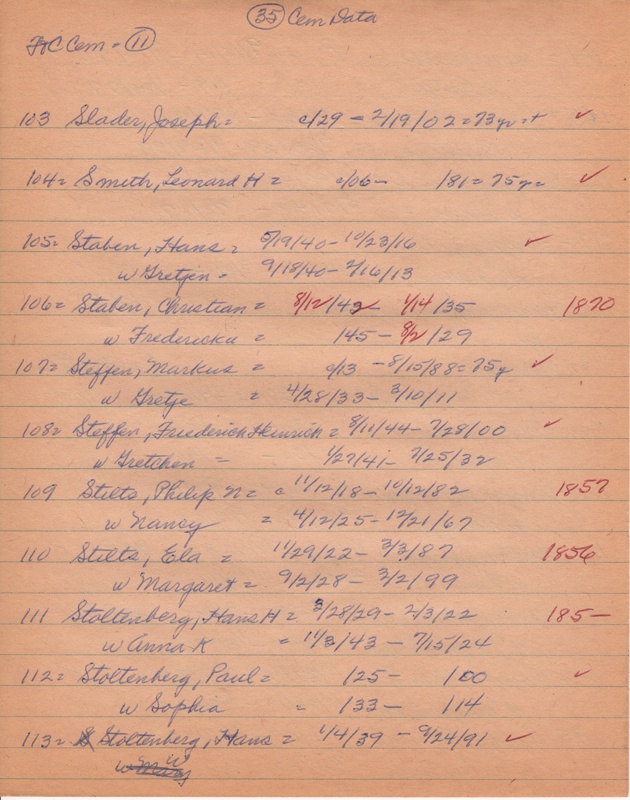 35 Cem Data
Cem = 11
103 Slader, Joseph = c/29 - 2/19/02 = 73 yr = + ✓
104 = Smith, Leonard H = c/06 - /81 = 75 yr = ✓
105 = Staben, Hans = 5/19/40 - 10/23/16 ✓
w Gretjen = 9/18/40 - 2/16/13
106 = Staben, Christian = 8/12/42 - 1/14/35 1870
w Fredericka = 145 - 8/2/29
107 = Steffen, Markus = c/13 - 8/15/88 = 75 y ✓
w Gretje = 4/28/33 - 3/10/11
108 = Steffen, Friederich Heinrich = 8/11/44 - 7/28/00 ✓
w Gretchen = 1/27/41 - 7/25/32
109 Stilts, Philip N = c 11/12/18 - 10/12/82 1857
w Nancy = 4/12/25 - 12/21/67
110 Stilts, Ela = 11/29/22 - 3/3/87 1856
w Margaret = 9/2/28 - 3/2/99
111 Stoltenberg, Hans H = 3/28/29 - 2/3/22 185-
w Anna K = 11/3/43 - 7/15/24
112 = Stoltenberg, Paul = /25 - /00 ✓
w Sophia = /33 - /14
113 = Stoltenberg, Hans = 1/4/39 - 9/24/91 ✓
w